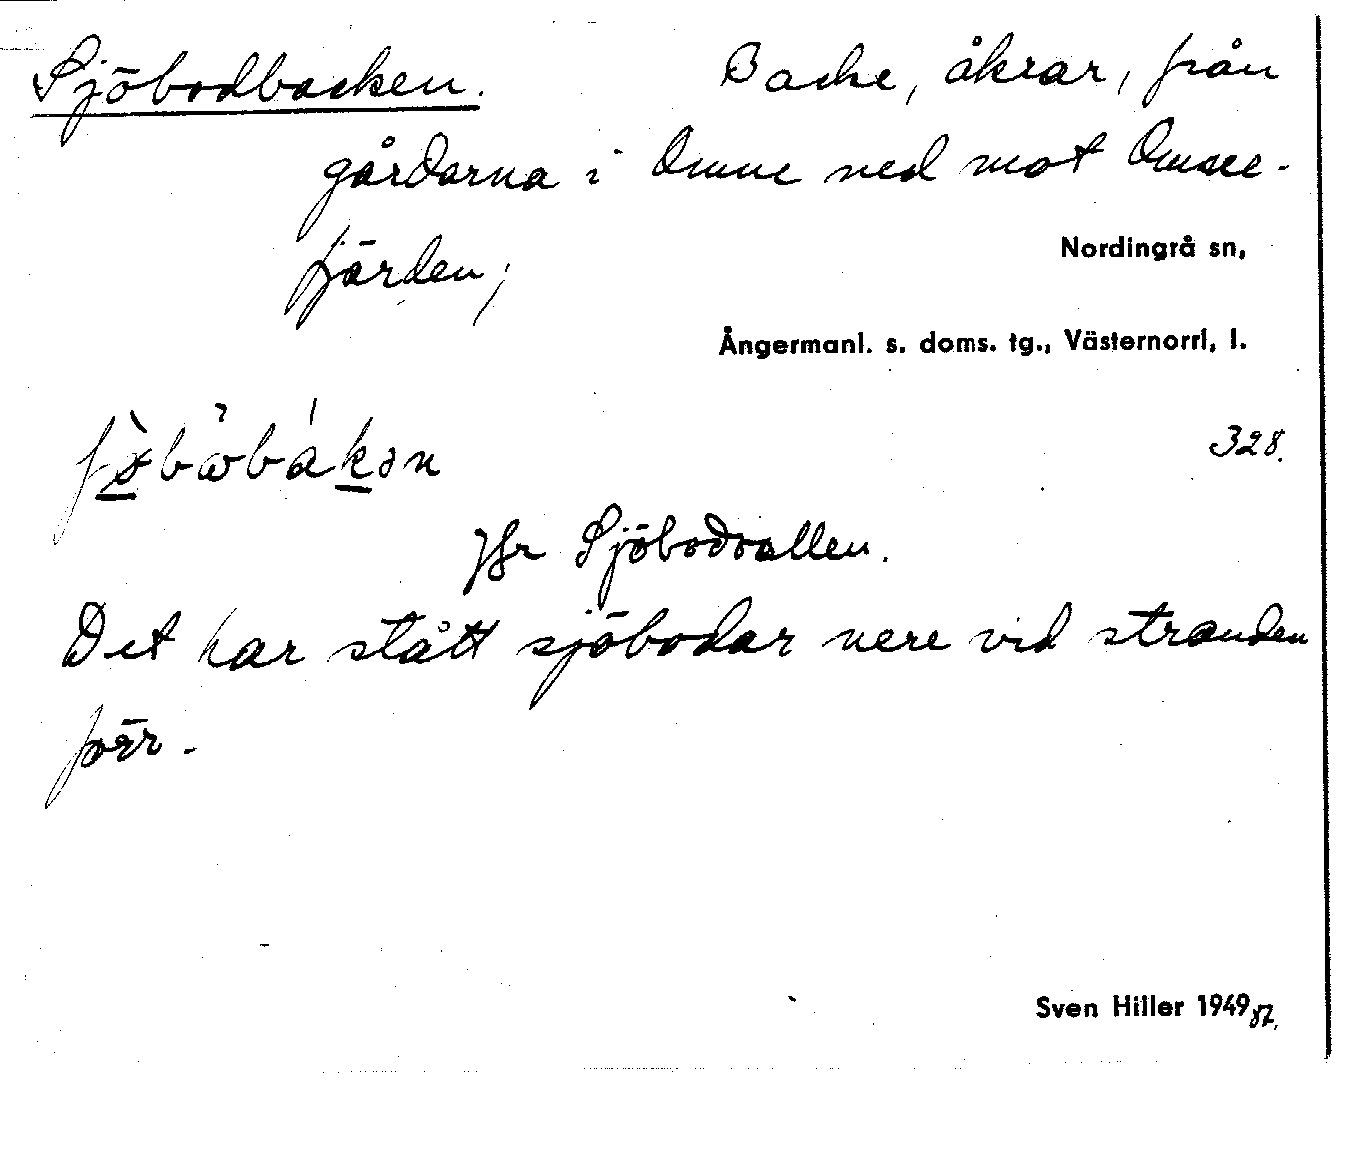 Sjöbodbacken. Backe, åkrar, från
gårdarna i Omne ned mot Omne-
fjärden;
Nordingrå sn,
Ångermanl. s. doms. tg., Västernorrl. l.
328.
Jfr Sjöbodvallen.
Det har stått sjöbodar nere vid stranden
förr.
Sven Hiller 1949